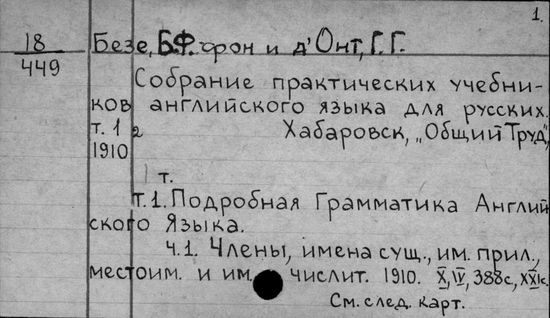 1.
18 Безе, Б.Ф. фон и д'Онт, Г. Г.
449
Собрание практических учебни-
ков английского языка для русских.
т. 1 2 Хабаровск, „Общий Труд",
1910
1 т.
т. 1. Подробная Грамматика Англий
ского Языка.
ч. 1. Члены, имена сущ., им. прил.,
местоим. и им. числит. 1910. X, IV, 388с,
См. след. карт.